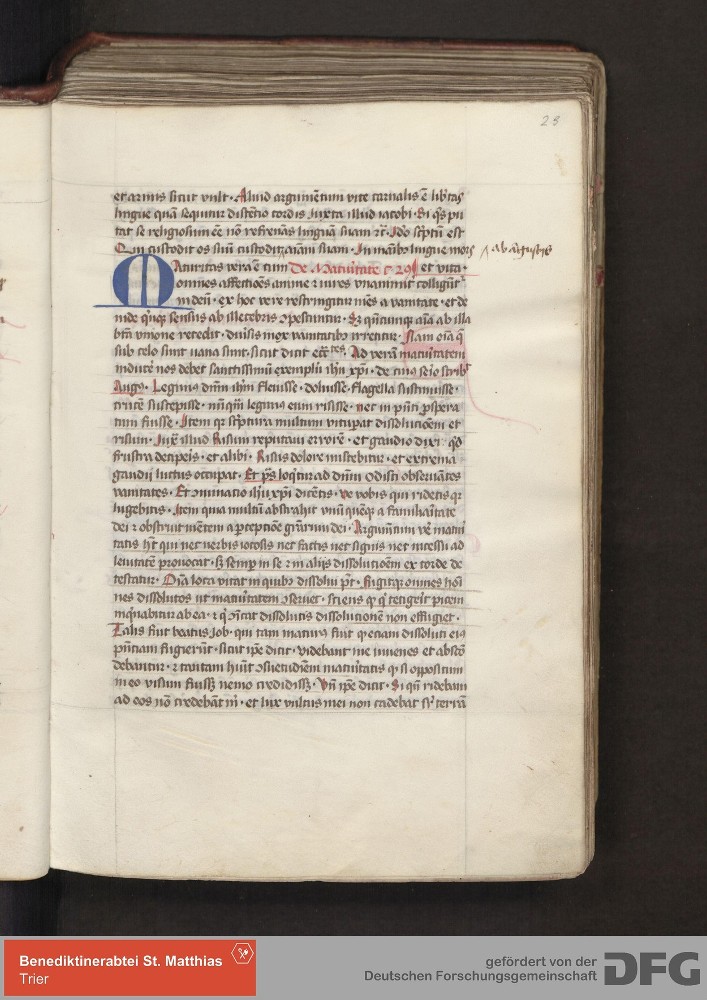 23
et carnis sicut vult · Aliud argumētum vite carnalis ē lib̄tas
lingue quā sequitur distētio cordis Juxta illud iacobi · Si q̄s pu
tat se religiosum ēē nō refrenās linguā suam ⁊c̄ · Ideo sc̄ptū est
Qui custodit os suū custodit aīam suam · In manib͛ lingue mors
⁁ ab angustiis
De Maturitate c 29 et vita ·
MAturitas vera ē cum
omnes affectiōes anime ⁊ vires vnanimit͛ colligūt͛
in deū · ex hoc vere restringitur mēs a vanitate · et de
inde q̄nq; sensus ab illecebris ꝯpescuntur · Et q̄ncunq; aīa ab illa
btā vnione recedit · diuīsis mox vanitatib͛ irretitur · Nam oīa q̄
sub celo sunt uana sunt · sicut dicit ecc̄tes · Ad verā maturitatem
inducē nos debet sanctissimū exemplū ih̄u xp̄i · de cuius se͛io scrib͛
Aug͛ · Legimus dn̄m ih̄m fleuisse · doluisse · flagella sustinuisse ·
crucē suscepisse · nūq̄m legimus eum risisse · nec in p̄nti ꝓspera
tum fuisse · Item q͛ sc̄ptura multum vitupat dissolucōem et
risum · Jux͛ illud Risum reputaui errorē · et gaudio dixi · q̄d
frustra deciperis · et alibi · Risus dolore miscebitur · et extrema
gaudij luctus occupat · Et p̄s loq͛tur ad dn̄m Odisti obseruātes
vanitates · Et ꝯminatio ih̄u xp̄i dicētis · Ve vobis qui ridetis q͛
lugebitis · Item quia multū abstrahit vnū quēq; a familiaritate
dei ⁊ obstruit mētem a ꝑceptiōe gr̄arum dei · Argumētum ve͛ matu͛
tatis h̄t qui nec verbis iocosis nec factis nec signis nec incessu ad
leuitatē prouocat · S͛ semp in se ⁊ in alijs dissolucōem ex corde de
testatur · Oīa loca vitat in quib͛ dissolui p̄t · fugitq; omnes hoī
nes dissolutos ut maturitatem ꝯseruet · sciens q͛ q͛ tetigerit picem
inq͛nabitur ab ea · ⁊ q͛ ꝯicat dissolutis dissolutionem non effugiet ·
Talis fuit beatus Job · qui tam maturus fuit q͛ eciam dissoluti eiꝰ
p̄nciam fugierūt · sicut ip̄e dicit · videbant me iuuenes et abscō
debantur · ⁊ tantam habuit ꝯsuetudiēm maturitatis q͛ si oppositum
in eo visum fuiss; nemo credidiss; · Vn̄ ip̄e dicit · Si q̄n ridebam
ad eos nō credebāt m͛ · et lux vultus mei non cadebat sr͛ terrā
Benediktinerabtei St. Matthias
Trier
gefördert von der
Deutschen Forschungsgemeinschaft
DFG